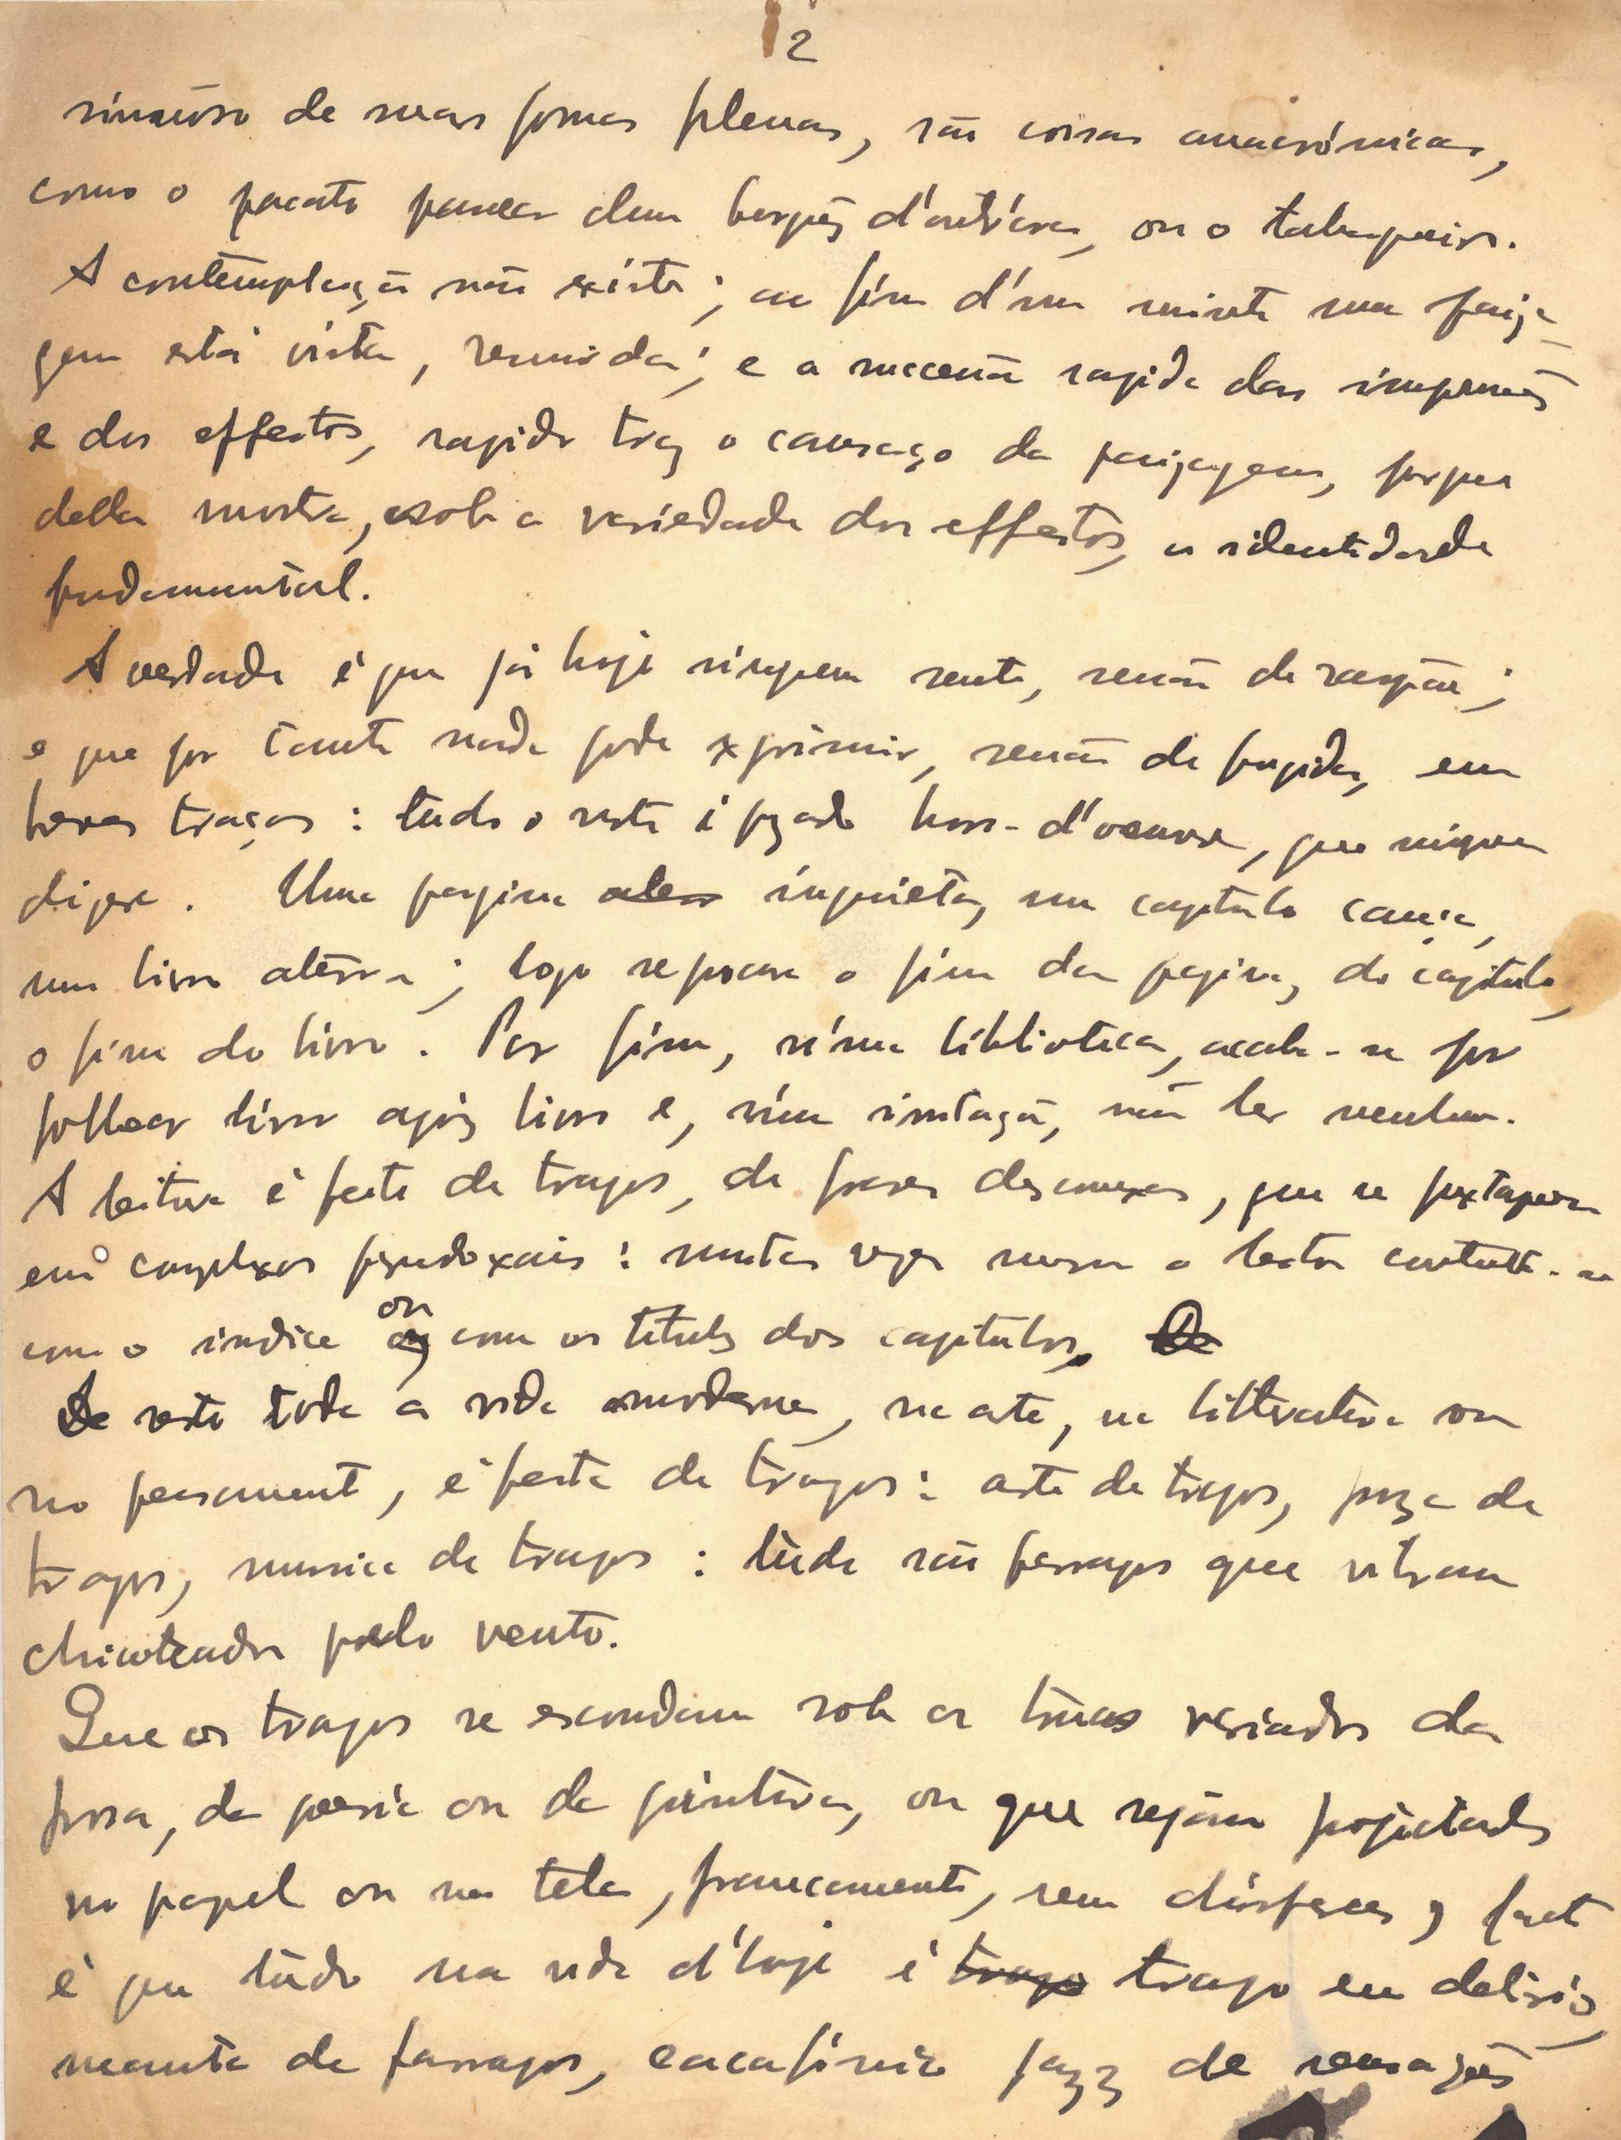 2
sinuoso de suas formas plenas, são coisas anacrónicas,
como o pacato parecer dum burguês d'outr'ora, ou o tabaqueiro.
A contemplação não existe; ao fim d'um minuto uma paiza-
gem está vista, resumida; e a successão rapida das impressões
e dos effeitos, rapido traz o cansaço da paizagem, porque
della mostra, sob a variedade dos effeitos, a identidade
fundamental.
A verdade é que já hoje ninguem sente, senão de raspão;
e que por tanto nada pode exprimir, senão de fugida, em
breves traços: tudo o resto é pezado hors-d'oeuvre, que ninguem
digere. Uma pagina inquieta, um capitulo cança,
um livro aterra; logo se procura o fim da pagina, do capitulo,
o fim do livro. Por fim, n'uma bibliotheca, acaba-se por
folhear livro após livro e, n'uma irritação, não ler nenhum.
A leitura é feita de traços, de frases desconexas, que se juxtapoem
em complexos paradoxais: muitas vezes mesmo o leitor contenta-se
com o indice ou com os titulos dos capitulos.
De resto toda a vida moderna, na arte, na litteratura ou
no pensamento, é feita de traços: arte de traços, proza de
traços, musica de traços: tudo são farrapos que vibram
chicoteados pelo vento.
Que os traços se escondam sob as tintas variadas da
prosa, da poesia ou da pintura, ou que sejam projectados
no papel ou na tela, francamente, sem disfarces, o facto
é que tudo na vida d'hoje é traço traço em delirio,
manta de farrapos, cacafónico jazz de sensações